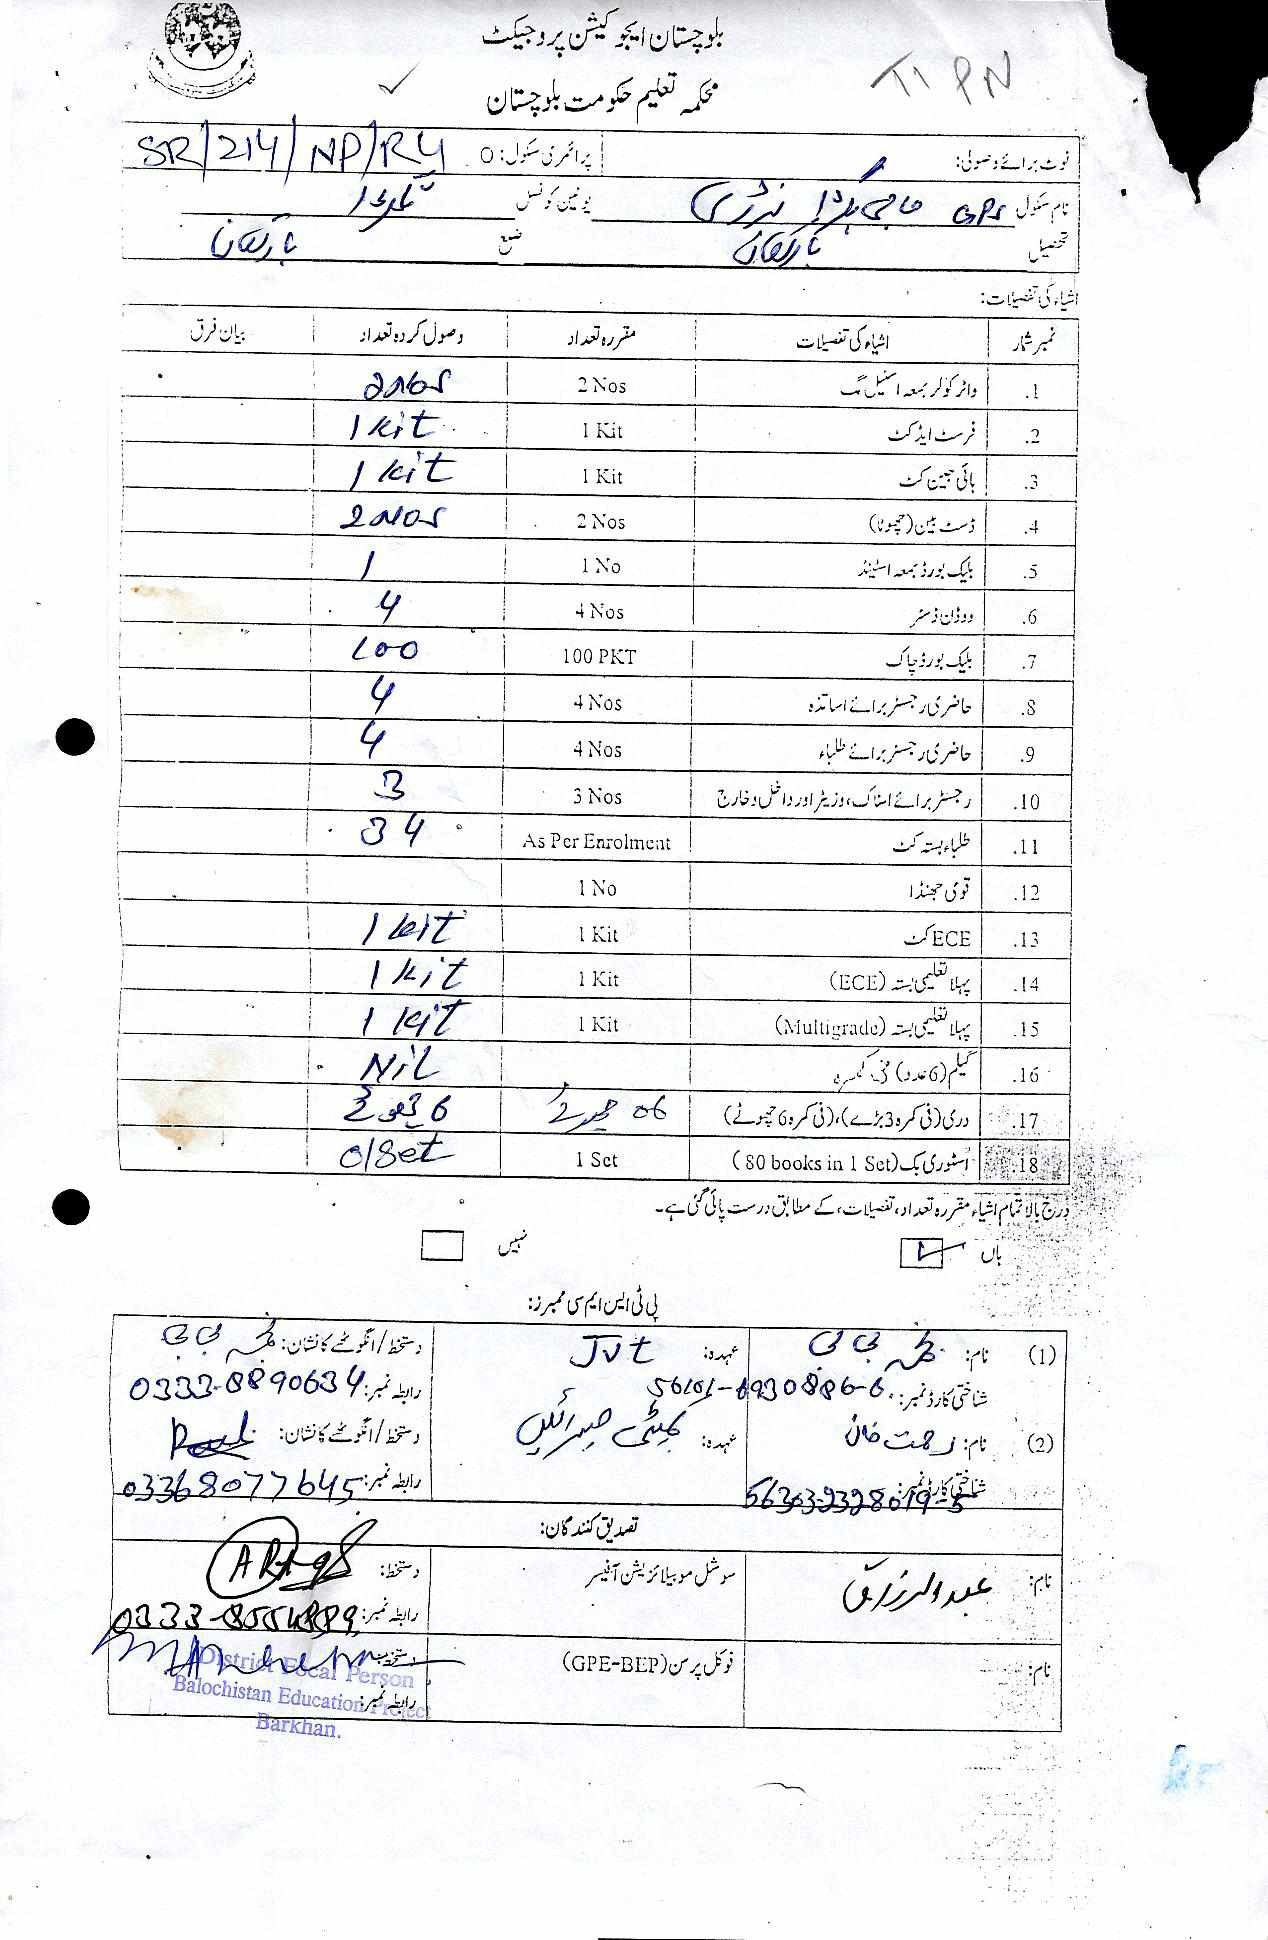 بلوچستان ایجوکیشن پروجیکٹ
محکمہ تعلیم حکومت بلوچستان
T1 PN
نوٹ برائے وصولی: پرائمری سکول: O SR/214/NP/RY
نام سکول GPS حاجی یونین کونسل
تحصیل بارکھان ضلع بارکھان
اشیاء کی تفصیلات:
نمبر شمار اشیاء کی تفصیلات مقررہ تعداد وصول کردہ تعداد بیان فرق
1. واٹر کولر بمعہ اسٹیل مگ 2 Nos 2 Nos
2. فرسٹ ایڈ کٹ 1 Kit 1 Kit
3. ہائی جین کٹ 1 Kit 1 Kit
4. ڈسٹ بین (چھوٹا) 2 Nos 2 Nos
5. بلیک بورڈ بمعہ اسٹینڈ 1 No 1
6. ووڈن ڈسٹر 4 Nos 4
7. بلیک بورڈ چاک 100 PKT 100
8. حاضری رجسٹر برائے اساتذہ 4 Nos 4
9. حاضری رجسٹر برائے طلباء 4 Nos 4
10. رجسٹر برائے اسٹاک، وزیٹر اور داخل و خارج 3 Nos 3
11. طلباء بستہ کٹ As Per Enrolment 34
12. قومی جھنڈا 1 No
13. ECE کٹ 1 Kit 1 Kit
14. پہلا تعلیمی بستہ (ECE) 1 Kit 1 Kit
15. پہلا تعلیمی بستہ (Multigrade) 1 Kit 1 Kit
16. گلیم (6 عدد) فی کمرہ Nil
17. دری (فی کمرہ 3 بڑے)، (فی کمرہ 6 چھوٹے) 06 چھوٹے 6 چھوٹے
18. اسٹوری بک (80 books in 1 Set) 1 Set 01 Set
درج بالا تمام اشیاء مقررہ تعداد، تفصیلات، کے مطابق درست پائی گئی ہے۔
ہاں نہیں
پی ٹی ایس ایم سی ممبرز:
(1) نام: بی بی عہدہ: JVT دستخط / انگوٹھے کا نشان: بی بی
شناختی کارڈ نمبر: 56101-6930886-6 رابطہ نمبر: 0333-8890634
(2) نام: رحمت خان عہدہ: کمیٹی دستخط / انگوٹھے کا نشان:
شناختی کارڈ نمبر: 56303-2328019-5 رابطہ نمبر: 03368077645
تصدیق کنندگان:
نام: عبدالرزاق سوشل موبیلائزیشن آفیسر دستخط:
رابطہ نمبر: 0333-8554889
نام: فوکل پرسن (GPE-BEP) دستخط:
رابطہ نمبر:
District Focal Person
Balochistan Education Project
Barkhan.